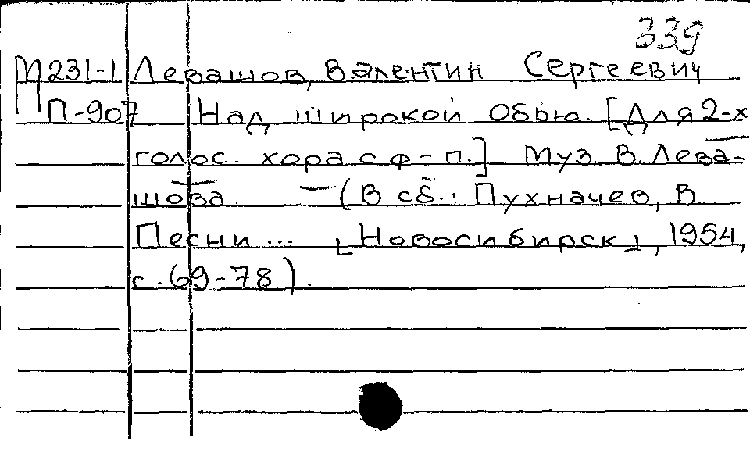 339
М231-1 Левашов, Валентин Сергеевич
П-907 Над широкой Обью. [Для 2-х
голос. хора с ф-п.] Муз. В. Лева-
шова. — (В сб.: Пухначев, В.
Песни ... [Новосибирск], 1954,
с. 69-78).